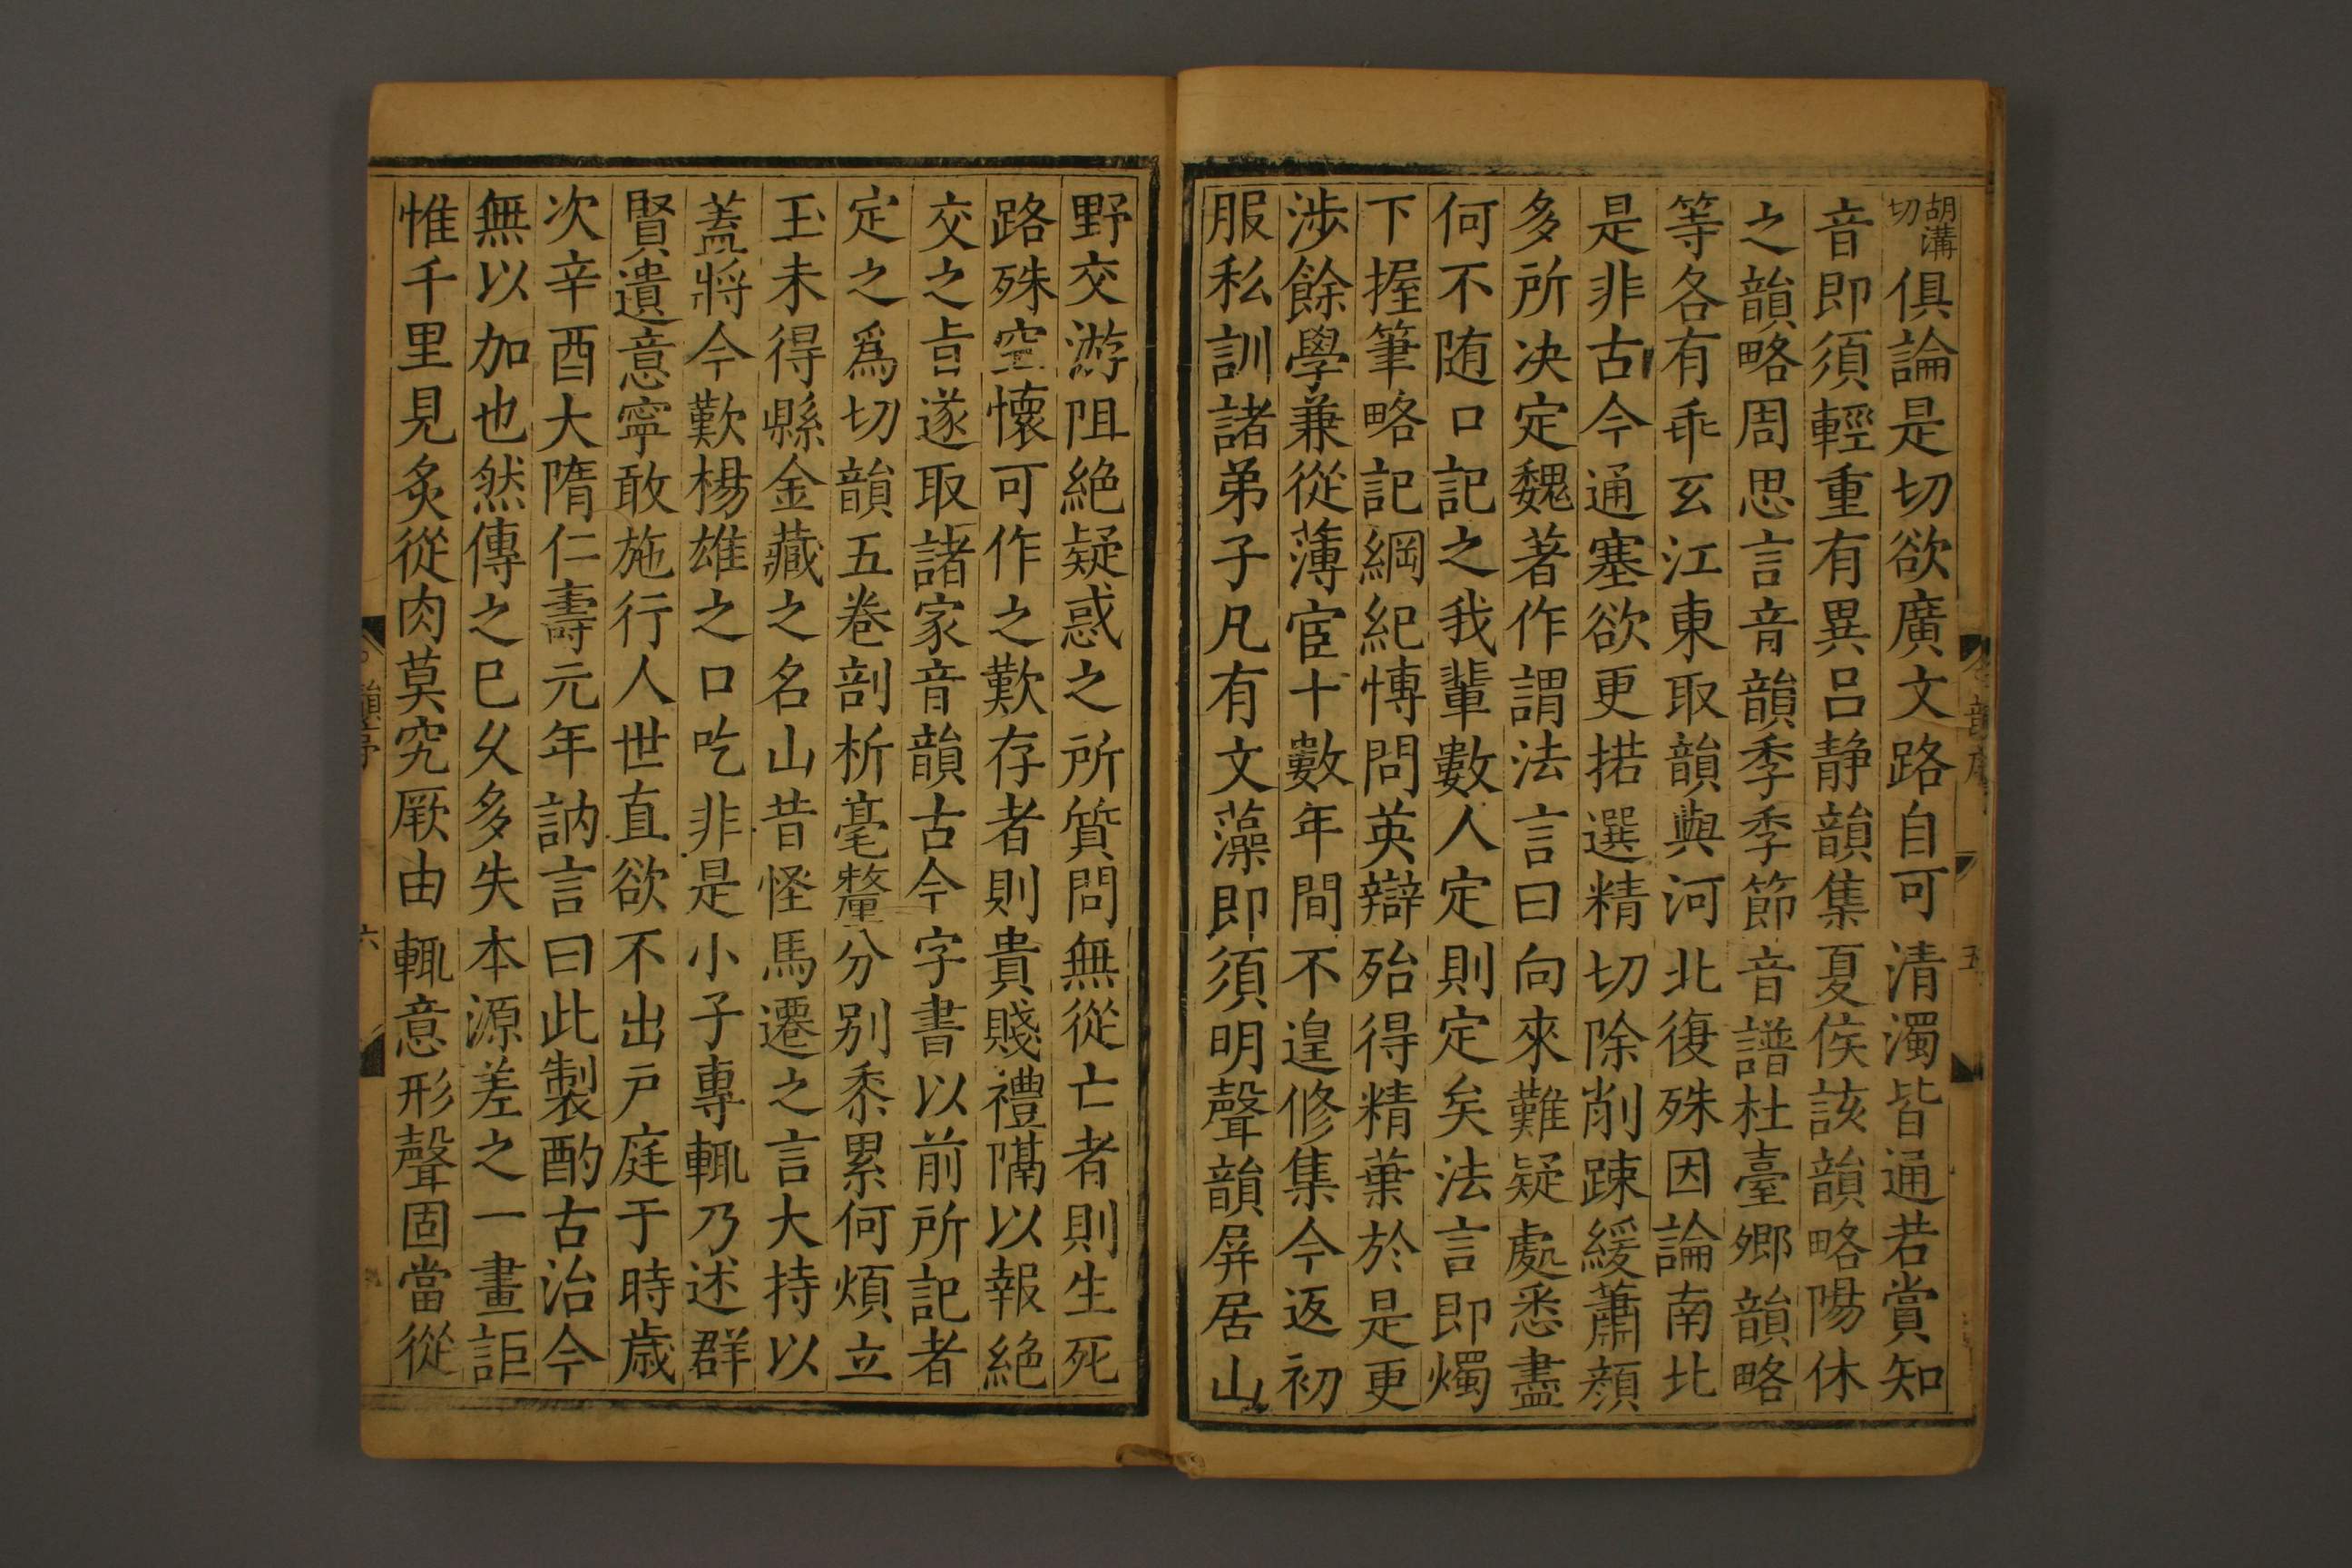 胡溝切俱論是切欲廣文路自可清濁皆通若賞知
音即須輕重有異呂静韻集夏侯該韻略陽休
之韻略周思言音韻李季節音譜杜臺卿韻略
等各有乖互江東取韻與河北復殊因論南北
是非古今通塞欲更捃選精切除削疎緩蕭顔
多所决定魏著作謂法言曰向來難疑處悉盡
何不随口記之我輩數人定則定矣法言即燭
下握筆略記綱紀博問英辯殆得精華於是更
涉餘學兼從薄宦十數年間不遑修集今返初
服私訓諸弟子凡有文藻即須明聲韻屏居山
野交游阻絶疑惑之所質問無從亡者則生死
路殊空懷可作之歎存者則貴賤禮隔以報絶
交之旨遂取諸家音韻古今字書以前所記者
定之爲切韻五卷剖析毫釐分別黍累何煩泣
玉未得縣金藏之名山昔怪馬遷之言大持以
蓋將今歎楊雄之口吃非是小子專輒乃述群
賢遺意寧敢施行人世直欲不出戸庭于時歳
次辛酉大隋仁壽元年訥言曰此製酌古沿今
無以加也然傳之已久多失本源差之一畫詎
惟千里見炙從肉莫究厥由輒意形聲固當從
韻序
五
六